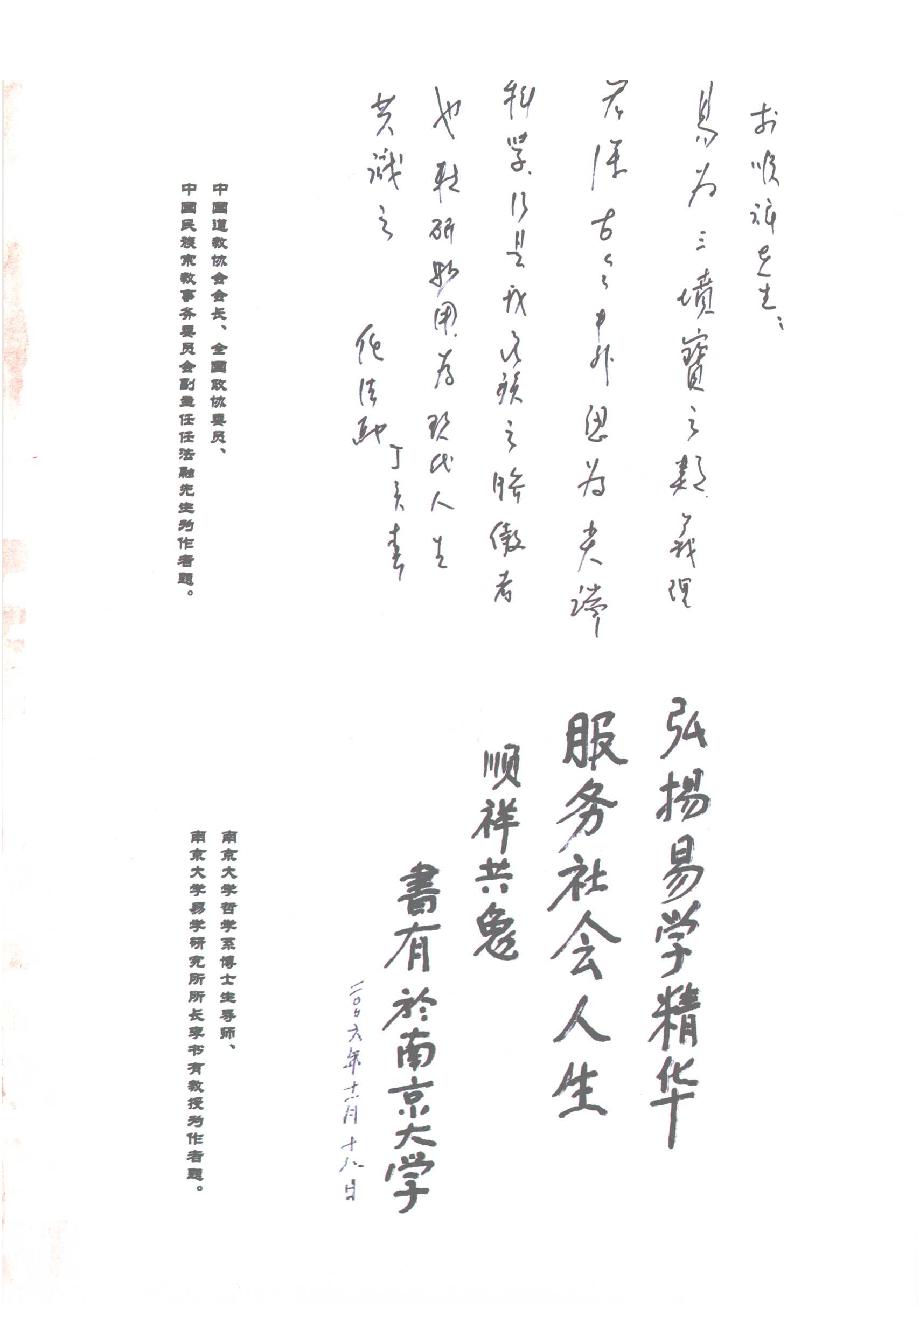 顺祥先生：
易为三墳寶之类義理
深古今中外思为尖端
科学乃是我民族之骄傲者
也 研 用为现代人生
共識之
任法融 丁亥春
中國道教协会会长、全國政协委员、
中國民族宗教事务委员会副主任任法融先生为作者题。
弘揚易学精华
服务社会人生
顺祥共勉
書有於南京大学
二〇〇六年十二月十八日
南京大学哲学系博士生导师、
南京大学易学研究所所长李书有教授为作者题。